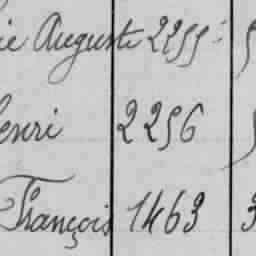 ie Auguste 2255
enri 2256
François 1463 3